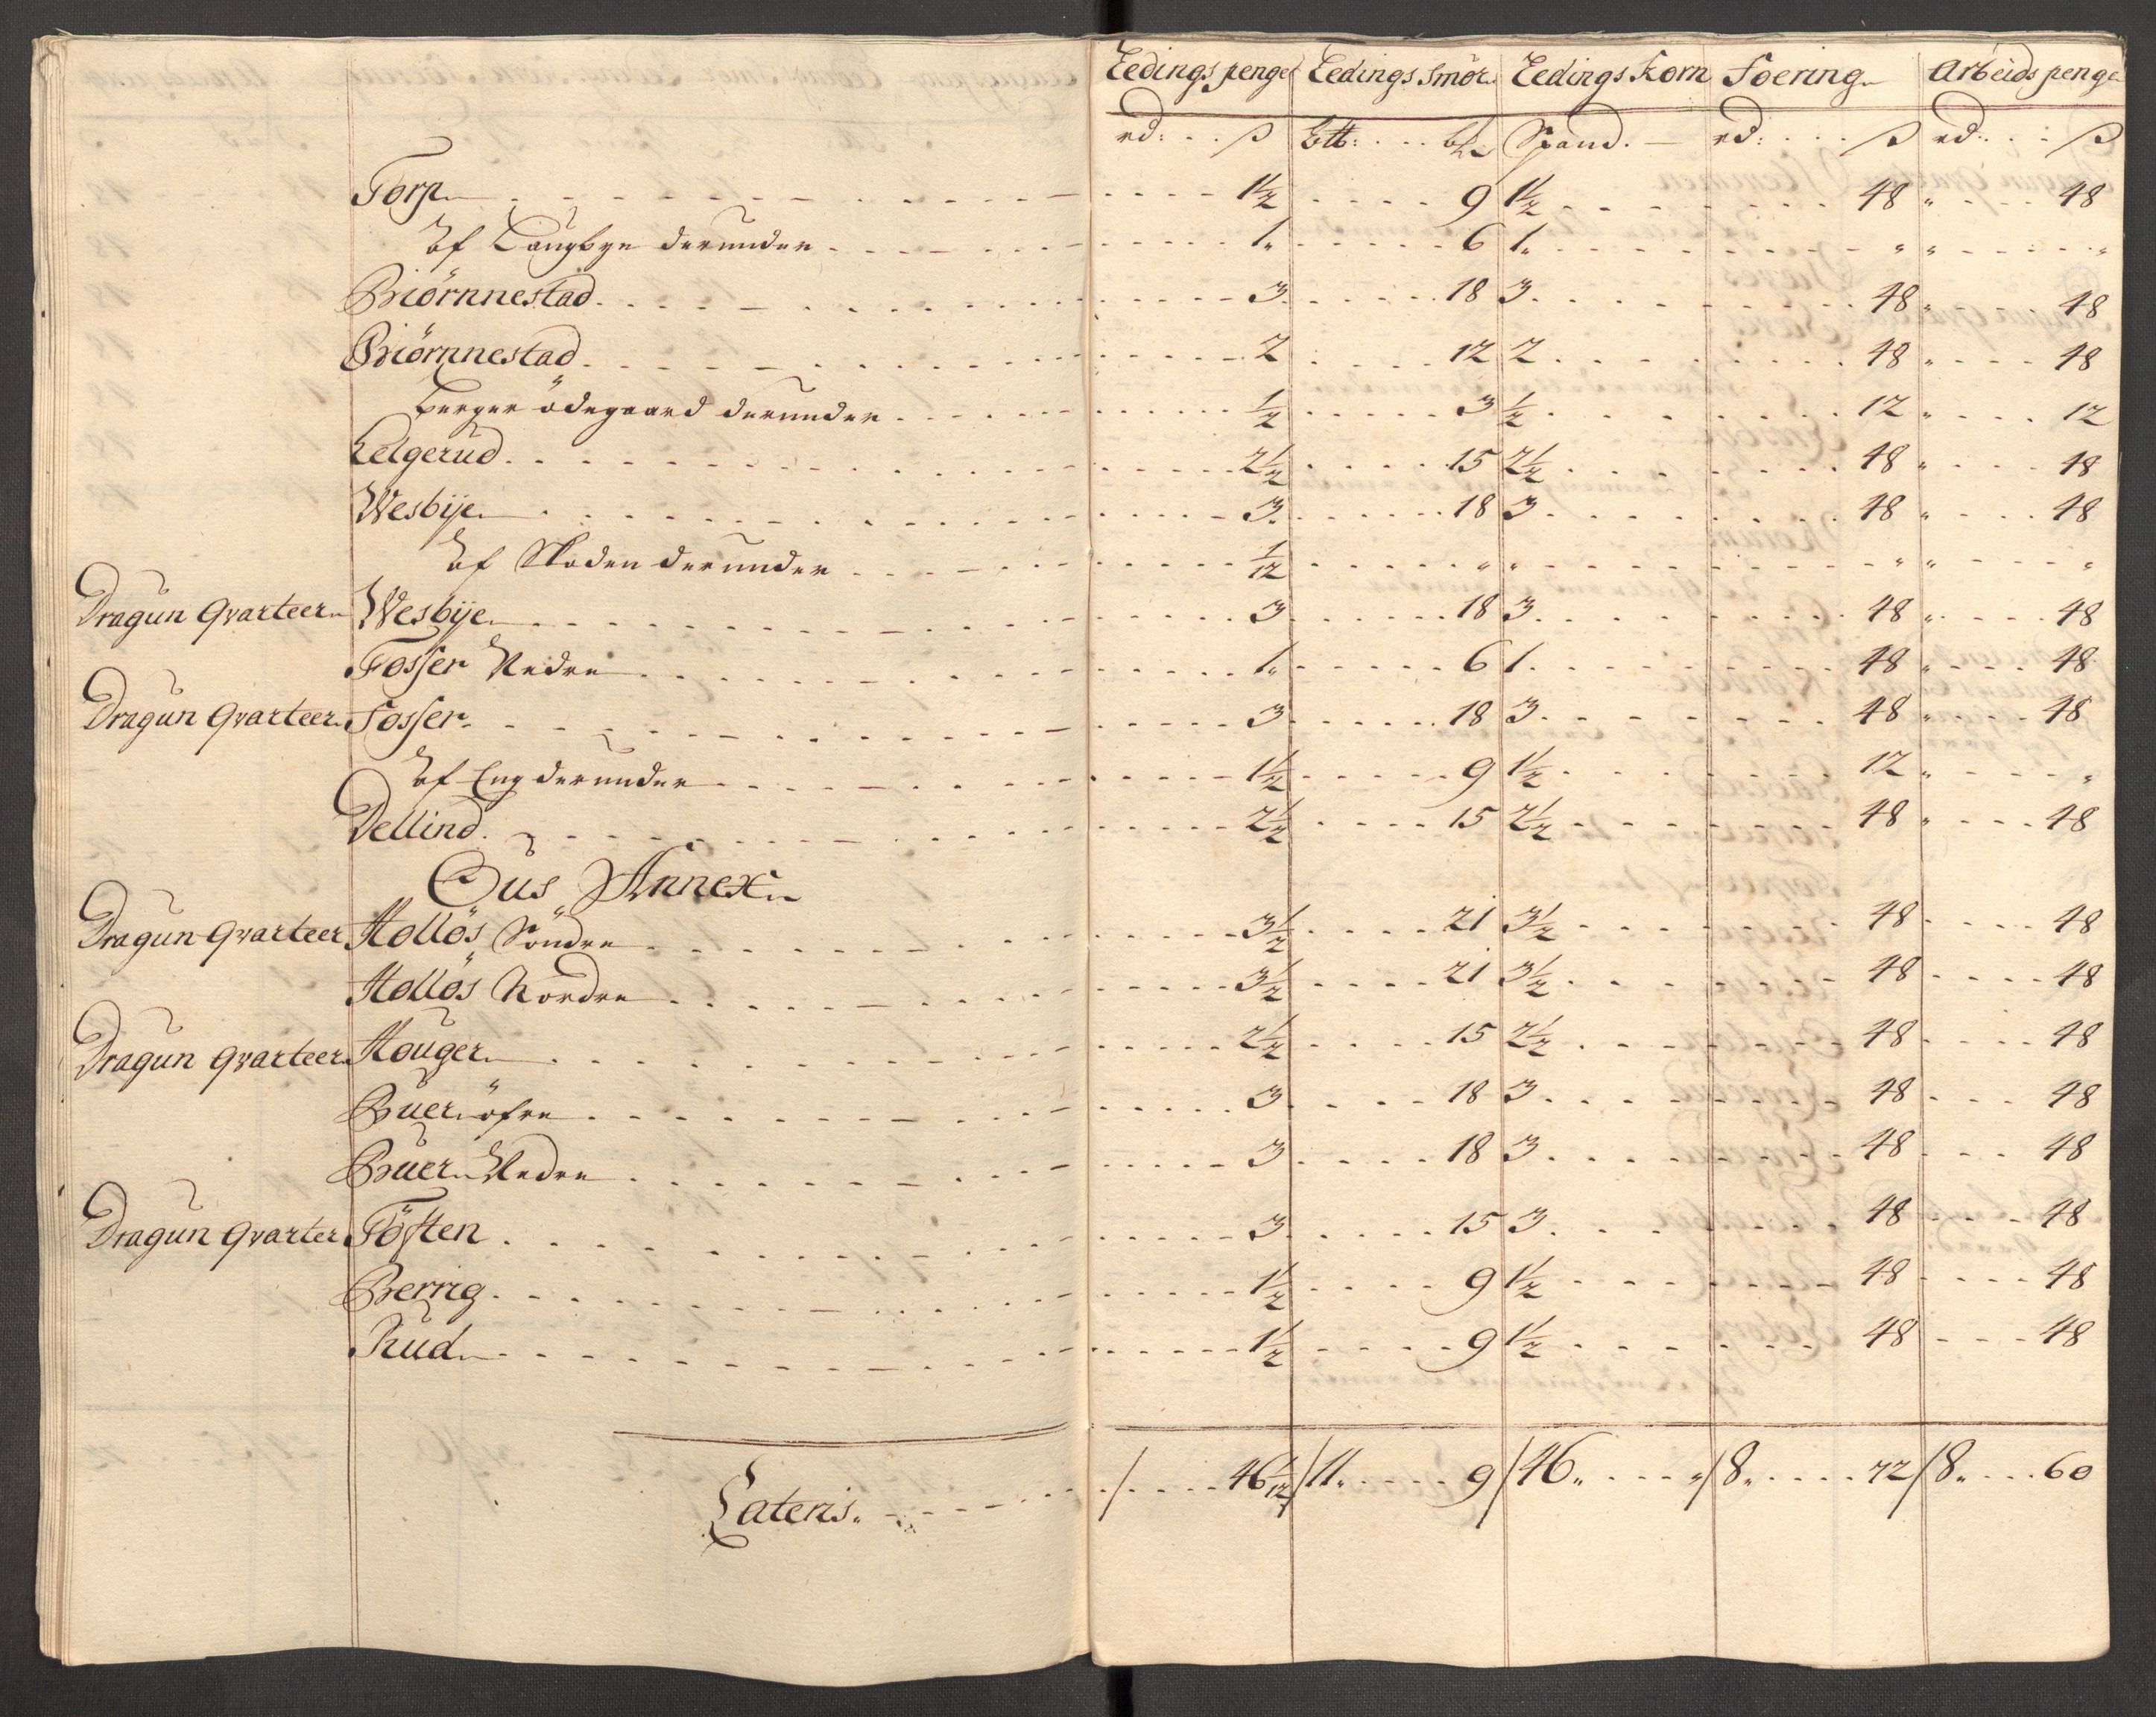 Ledings penge Ledings Smör Ledings Korn Foering Arbeids penge
rd: . . ß Btt: . . . bl Spand. rd: . . . ß rd: . . ß
Torp 1½ 9 1½ 48 " 48
af Langbye derunder 1 " 6 1 " " " "
Biörnnestad 3 18 3 48 " 48
Biörnnestad 2 12 2 48 " 48
Berger ödegaard derunder ½ 3 ½ 12 " 12
Helgerud 2½ 15 2½ 48 " 48
Wesbije 3 18 3 48 " 48
af derunder 1/12 " " " " "
Dragun Qvarteer Wesbije 3 18 3 48 " 48
Fosser Nedre 1 " 6 1 48 " 48
Dragun Qvarteer Fosser 3 18 3 48 " 48
af Eng derunder 1½ 9 1½ 12 " "
Dellind 2½ 15 2½ 48 " 48
Ous Annex
Dragun Qvarteer Hollös Söndre 3½ 21 3½ 48 48
Hollös Nordre 3½ 21 3½ 48 48
Dragun Qvarteer Houger 2½ 15 2½ 48 48
Buer öfre 3 18 3 48 48
Buer Nedre 3 18 3 48 48
Dragun Qvarter Töften 3 15 3 48 48
Berrig 1½ 9 1½ 48 48
Rud 1½ 9 1½ 48 48
Lateris / 46 1/12 / 11 " 9 / 46 " " / 8 " 72 / 8 " 60